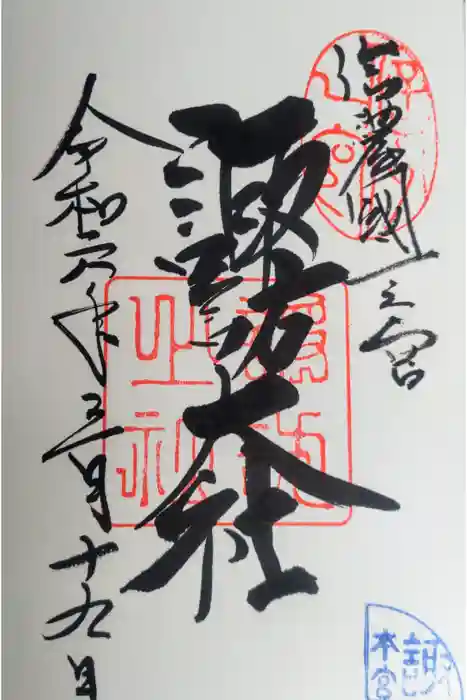 信濃國一之宮
諏訪大社
令和六年三月十九日
本宮